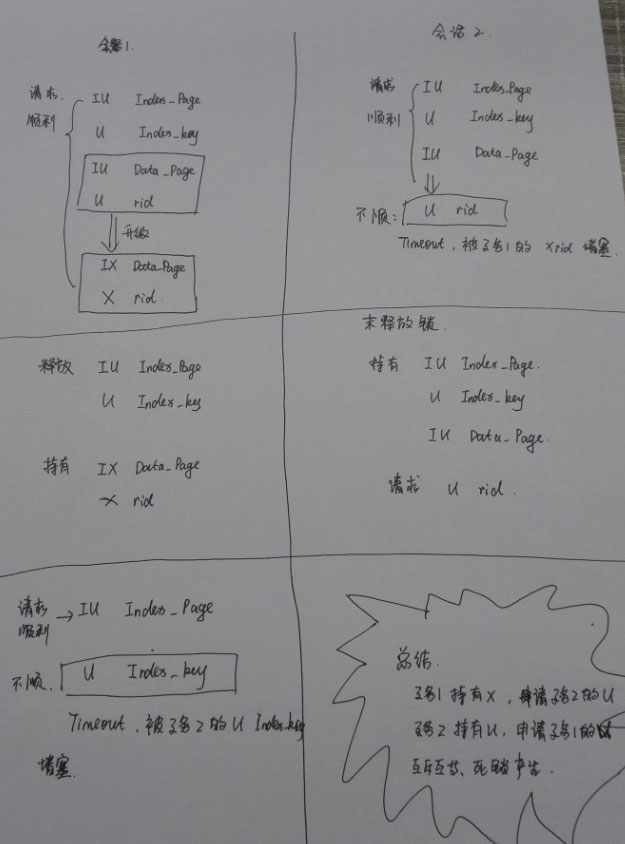 会话1
请求 IU Index_Page
顺利 U Index_key
IU Data_Page
U rid
升级
IX Data_Page
X rid
会话2
请求 IU Index_Page
顺利 U Index_key
IU Data_Page
不顺: U rid
Timeout, 被会话1的 X rid 堵塞
释放 IU Index_Page
U Index_key
持有 IX Data_Page
X rid
未释放锁
持有 IU Index_Page.
U Index_key
IU Data_Page.
请求 U rid.
请求 → IU Index_Page
顺利
不顺. U Index_key
Timeout, 被会话2的 U Index_key
堵塞.
总结.
会话1持有X, 申请会话2的U
会话2持有U, 申请会话1的
互斥互等、死锁产生.